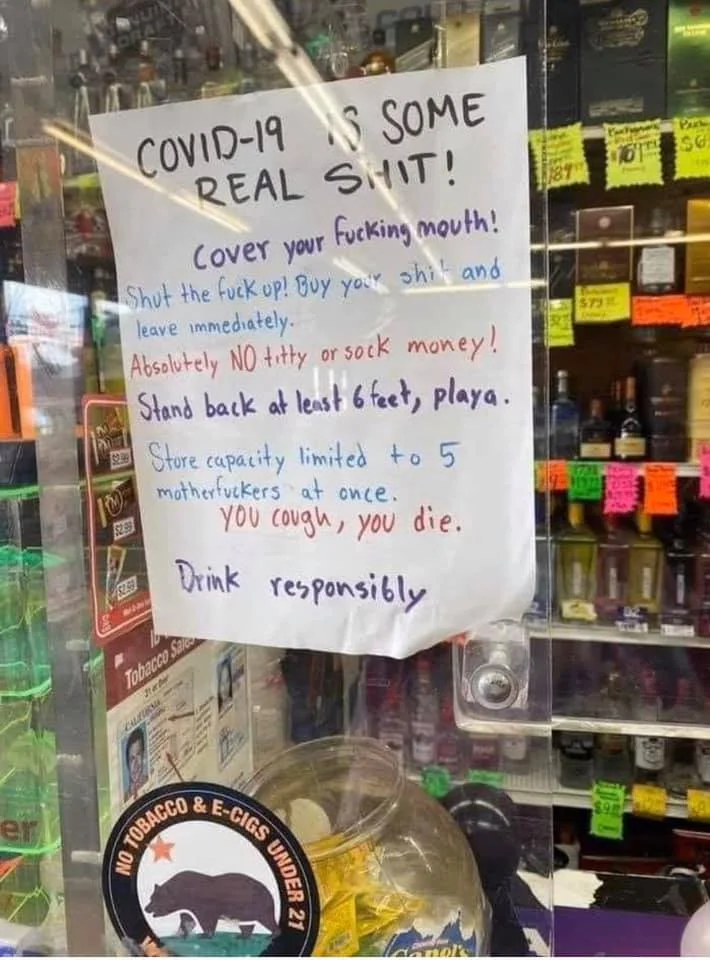 COVID-19 IS SOME
REAL SHIT!
Cover your Fucking mouth!
Shut the fuck up! Buy your shit and
leave immediately.
Absolutely NO titty or sock money!
Stand back at least 6 feet, playa.
Store capacity limited to 5
motherfuckers at once.
YOU cough, you die.
Drink responsibly
$2.99
$2.99
Tobacco Sales
CALIFORNIA
NO TOBACCO & E-CIGS UNDER 21
er